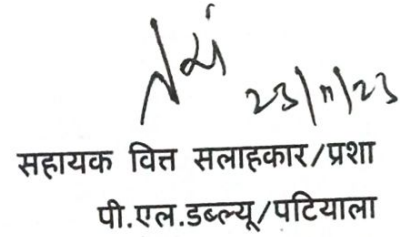 23/11/23
सहायक वित्त सलाहकार/प्रशा
पी.एल.डब्ल्यू/पटियाला